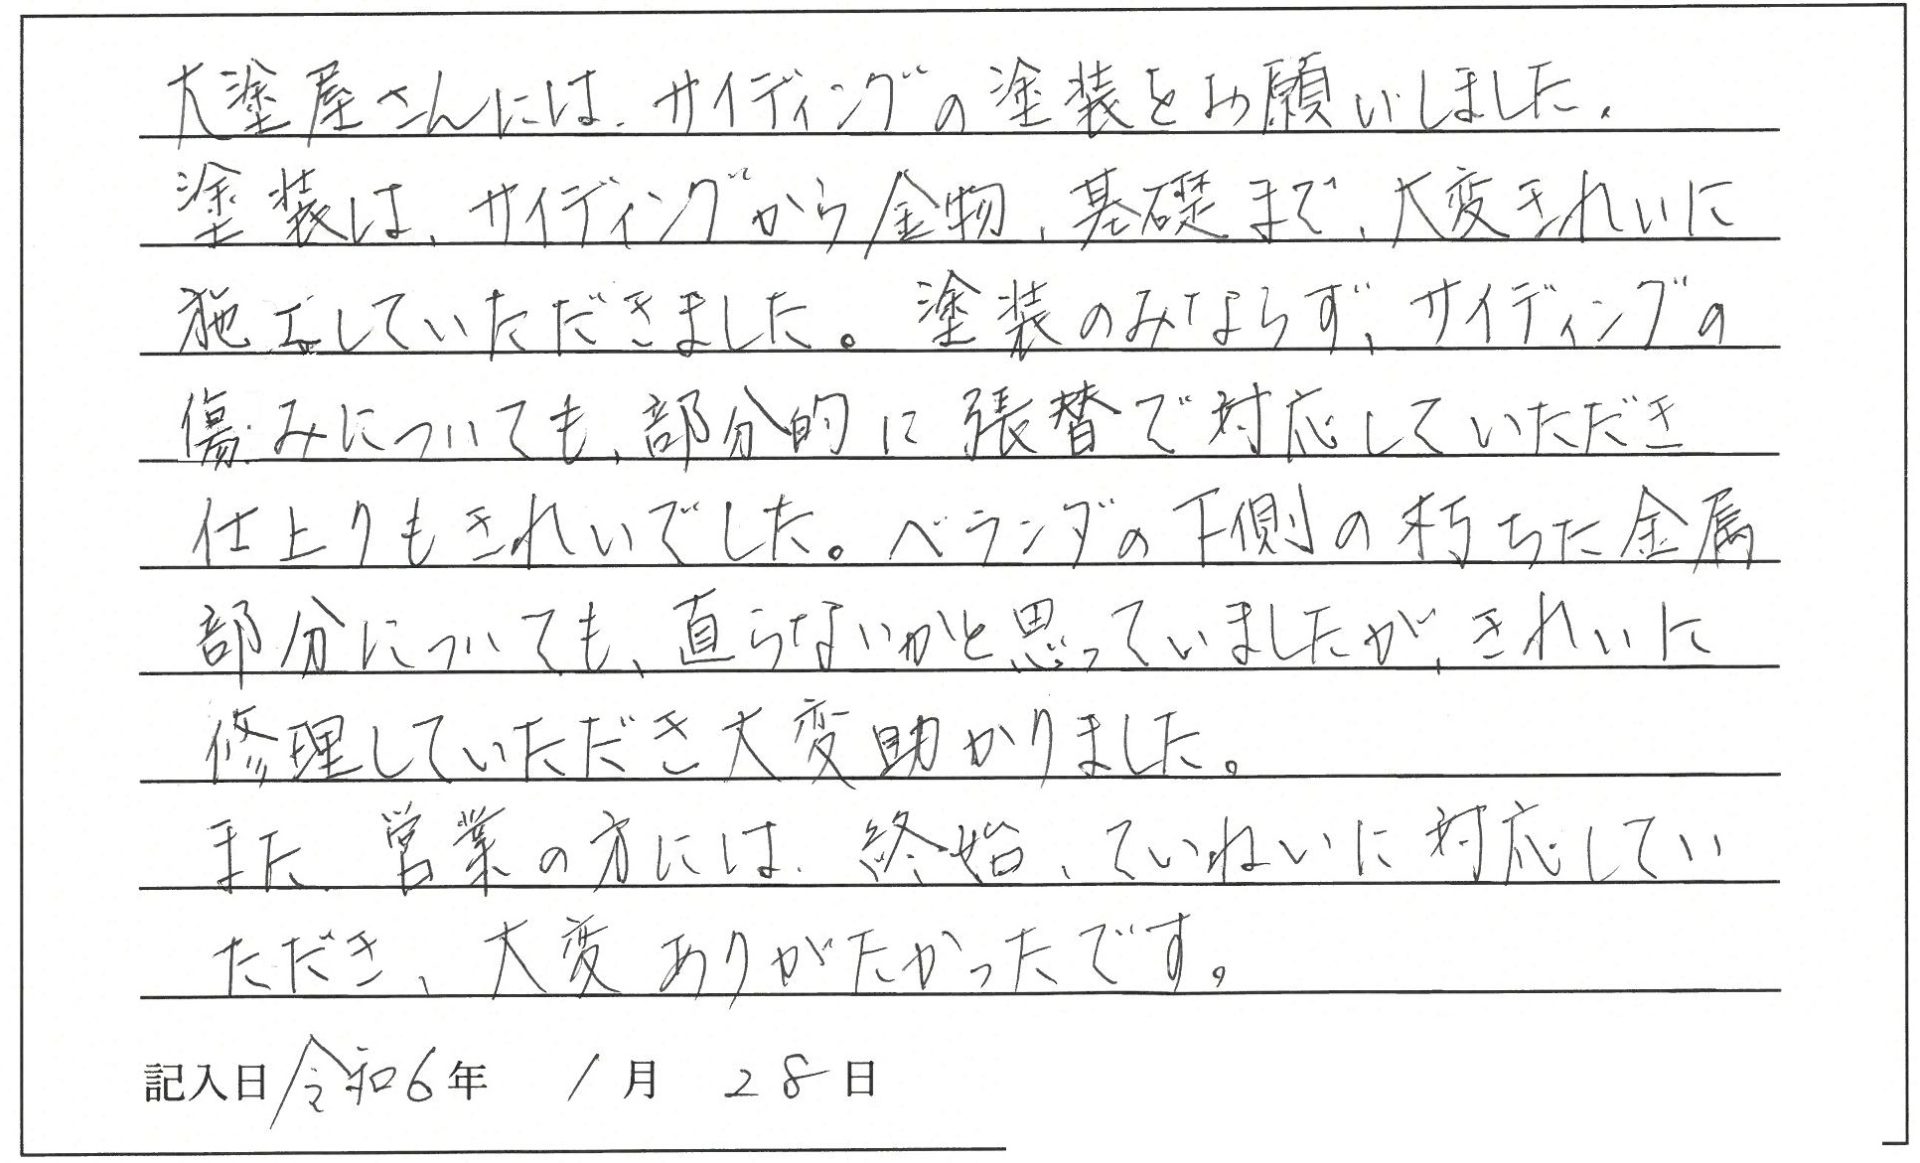 大塗屋さんには、サイディングの塗装をお願いしました。
塗装は、サイディングから金物、基礎まで、大変きれいに
施工していただきました。塗装のみならず、サイディングの
傷みについても、部分的に張替で対応していただき
仕上りもきれいでした。ベランダの下側の朽ちた金属
部分についても、直らないかと思っていましたが、きれいに
修理していただき大変助かりました。
また、営業の方には、終始、ていねいに対応してい
ただき、大変ありがたかったです。
記入日 令和6年 1月 28日